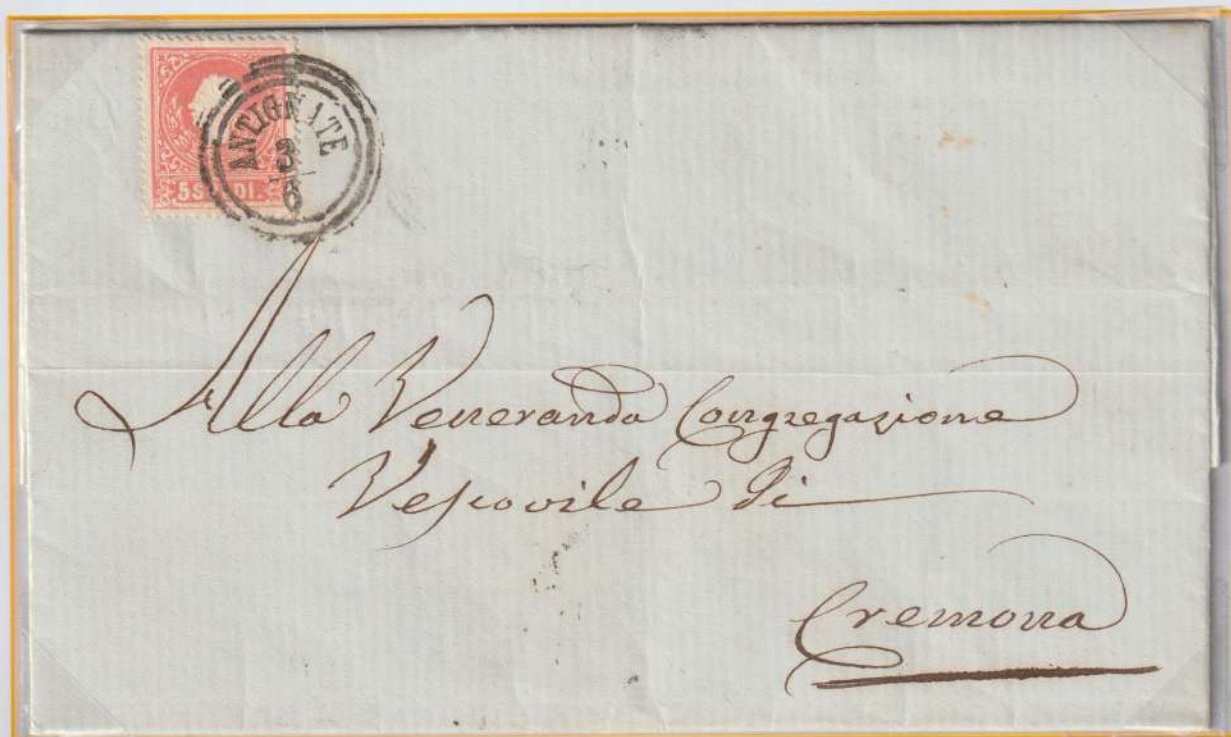 ANTIGNATE
3
6
5 S DI.
Alla Veneranda Congregazione
Vescovile di
Cremona